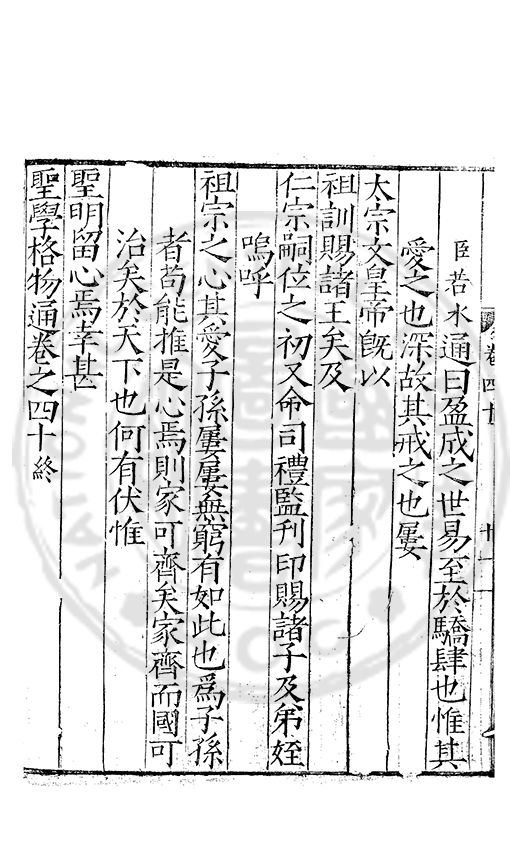 臣若水通曰盈成之世易至於驕肆也惟其
愛之也深故其戒之也屢
太宗文皇帝既以
祖訓賜諸王矣及
仁宗嗣位之初又命司禮監刊印賜諸子及弟姪
嗚呼
祖宗之心其愛子孫屢屢無窮有如此也為子孫
者苟能推是心焉則家可齊矣家齊而國可
治矣於天下也何有伏惟
聖明留心焉幸甚
聖學格物通卷之四十終